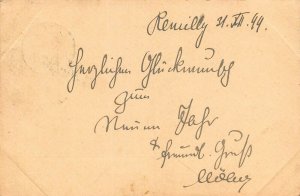 Remilly 31. XII. 99.
Herzlichen Glückwunsch
zum
Neuen Jahr
& freundl. Gruß